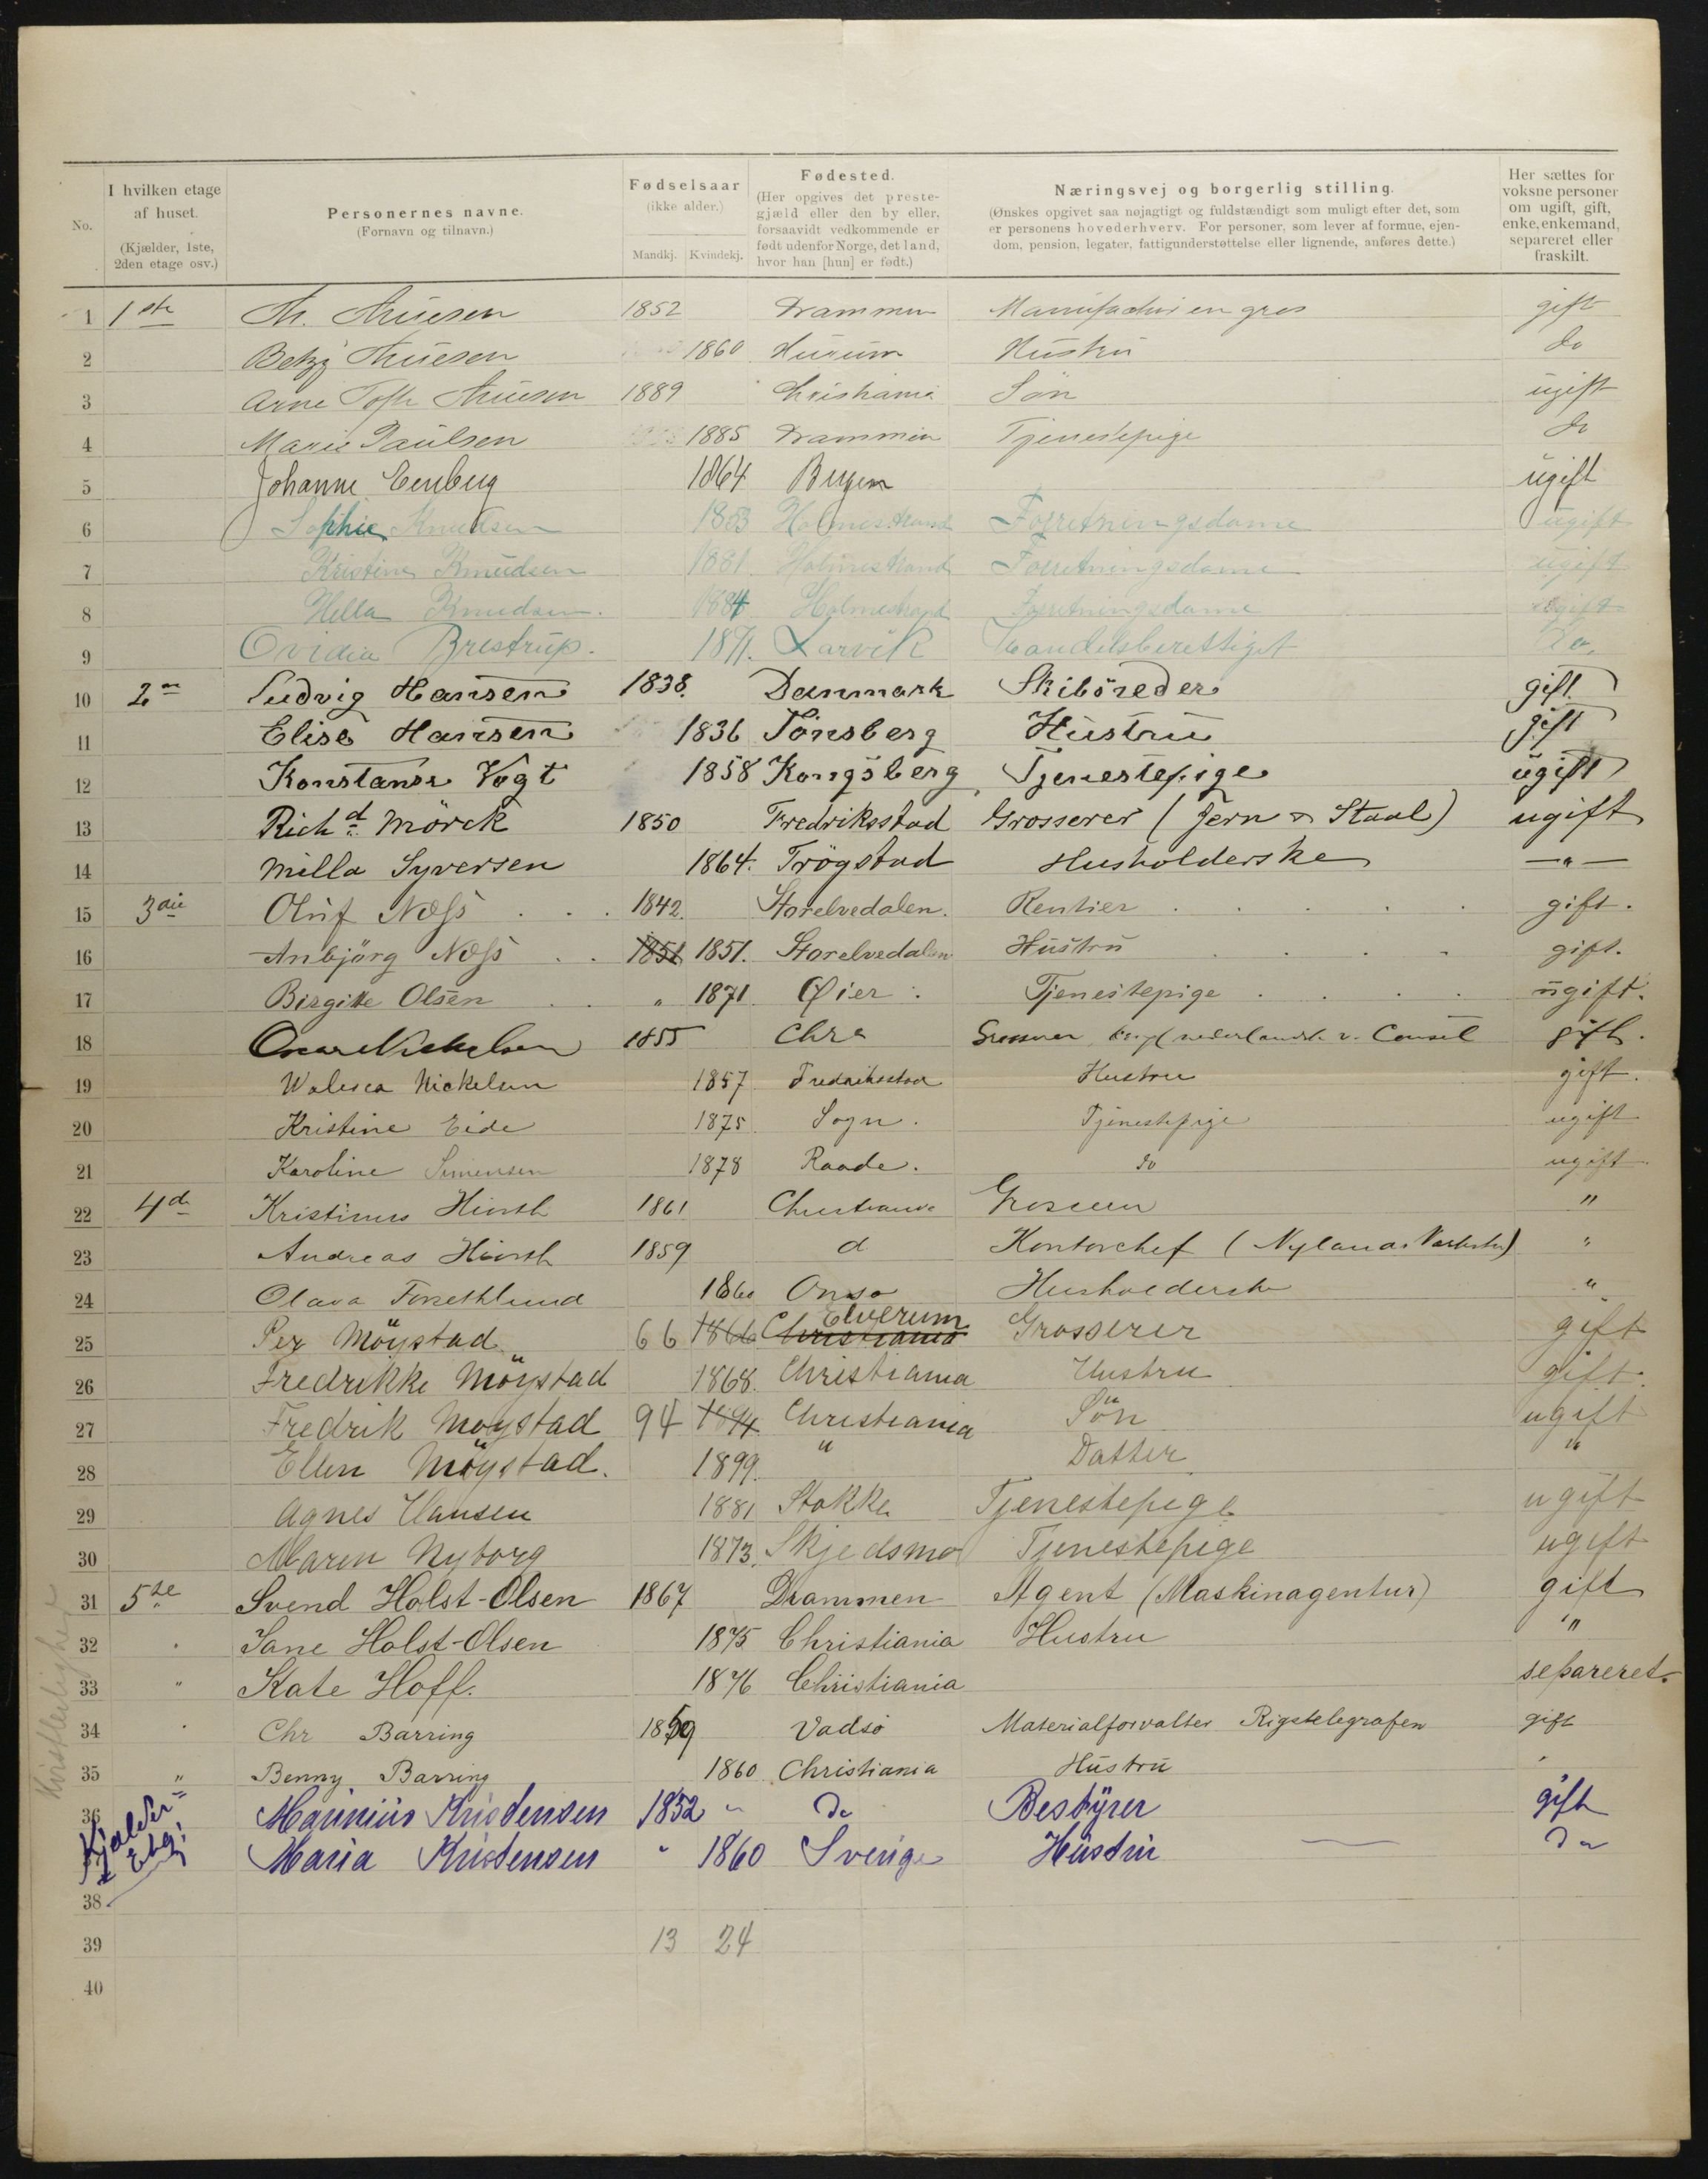 No. | I hvilken etage af huset. (Kjælder, 1ste, 2den etage osv.) | Personernes navne. (Fornavn og tilnavn.) | Fødselsaar (ikke alder.) Mandkj. Kvindekj. | Fødested. (Her opgives det prestegjæld eller den by eller, forsaavidt vedkommende er født udenfor Norge, det land, hvor han [hun] er født.) | Næringsvej og borgerlig stilling. (Ønskes opgivet saa nøjagtigt og fuldstændigt som muligt efter det, som er personens hovederhverv. For personer, som lever af formue, ejendom, pension, legater, fattigunderstøttelse eller lignende, anføres dette.) | Her sættes for voksne personer om ugift, gift, enke, enkemand, separeret eller fraskilt.
1 1ste Th. Thuesen 1852 Drammen Manufactur en gros gift
2 Betzy Thuesen 1860 Hurum Hustru do
3 Arne Toft Thuesen 1889 Christiania Søn ugift
4 Marie Paulsen 1885 Drammen Tjenestepige do
5 Johanne 1864 Bergen ugift
6 Sophie Knudsen 1853 Holmestrand Forretningsdame ugift
7 Kristine Knudsen 1881 Holmestrand Forretningsdame ugift
8 Hella Knudsen. 1884 Holmestrand Forretningsdame ugift
9 Ovidia Brestrup. 1871. Larvik Handelsberettiget Do.
10 2en Ludvig Hansen 1838. Danmark Skibsreder gift
11 Elise Hansen 1836 Tönsberg Hustru gift
12 Konstanse Vogt 1858 Kongsberg Tjenestepige ugift
13 Richd. Mörck 1850 Fredriksstad Grosserer (Jern & Staal) ugift
14 Milla Syversen 1864. Trögstad Husholderske —"—
15 3die Oluf Næss . . . 1842. Storelvedalen. Rentier . . . . . gift.
16 Anbjörg Næss . . 1851 1851. Storelvedalen Hustru . . . . gift.
17 Birgitte Olsen . . " 1871. Øier . Tjenestepige . . . . ugift.
18 Oscar Nickelsen 1855 Chra Grosserer, nederlandsk v. Consul gift.
19 Walesca Nickelsen 1857 Fredriksstad Hustru gift.
20 Kristine Eide 1875 Sogn. Tjenestepige ugift
21 Karoline Simensen 1878 Raade. do ugift
22 4de Kristinus Hiorth 1861 Christiania Grosserer "
23 Andreas Hiorth 1859 d Kontorchef (Nylands Værksted) "
24 Olava 1860 Onsø Husholderske "
25 Per Möystad 66 1866 Christiania Elverum Grosserer gift
26 Fredrikke Möystad 1868. Christiania Hustru gift.
27 Fredrik Möystad 94 1894 Christiania Sön ugift
28 Ellen Möystad. 1899. " Datter "
29 Agnes Hansen 1881 Stokke Tjenestepige ugift
30 Maren Nyborg 1873. Skjedsmo Tjenestepige ugift
31 5te Svend Holst-Olsen 1867 Drammen Agent (Maskinagentur) gift
32 " Jane Holst-Olsen 1875 Christiania Hustru "
33 " Kate Hoff. 1876 Christiania separeret.
34 " Chr Barring 1859 Vadsö Materialforvalter Rigstelegrafen gift
35 " Benny Barring 1860 Christiania Hustru "
36 Kjælder= Marinius Kristensen 1852 " Do Bestyrer gift
Etg: Maria Kristensen " 1860 Sverige Hustru Do
38
39 13 24
40